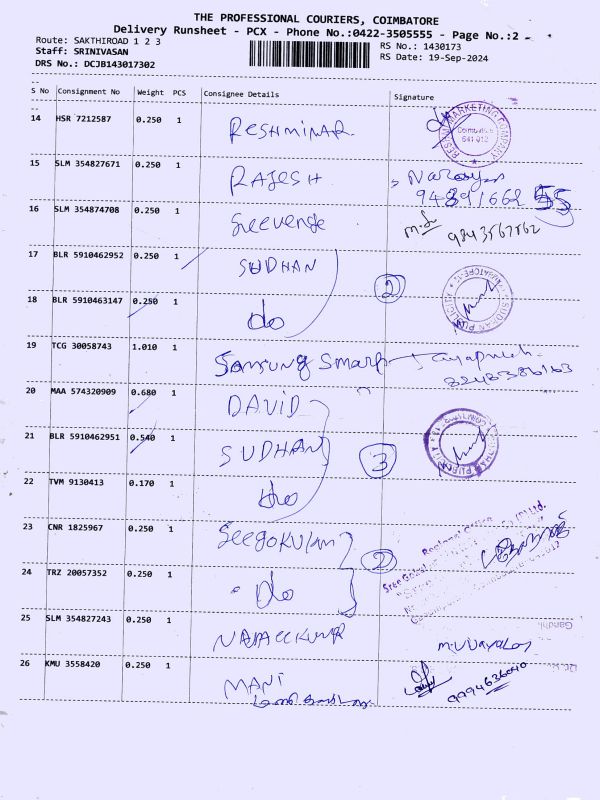 THE PROFESSIONAL COURIERS, COIMBATORE
Delivery Runsheet - PCX - Phone No.:0422-3505555 - Page No.:2 -
Route: SAKTHIROAD 1 2 3
RS No.: 1430173
Staff: SRINIVASAN
RS Date: 19-Sep-2024
DRS No.: DCJB143017302
S No Consignment No Weight PCS Consignee Details Signature
14 HSR 7212587 0.250 1 RESHMINAR
MARKETING COMPANY
641 012
15 SLM 354827671 0.250 1 RAJESH
16 SLM 354874708 0.250 1
17 BLR 5910462952 0.250 1 SUDHAN
2
18 BLR 5910463147 0.250 1 do
19 TCG 30058743 1.010 1 Samsung Smart
20 MAA 574320909 0.680 1 DAVID
21 BLR 5910462951 0.540 1 SUDHAN
3
22 TVM 9130413 0.170 1 do
23 CNR 1825967 0.250 1 Seegokulam
2
Regional Office
24 TRZ 20057352 0.250 1 do
25 SLM 354827243 0.250 1
Gandhi
26 KMU 3558420 0.250 1 MANI
9994636040